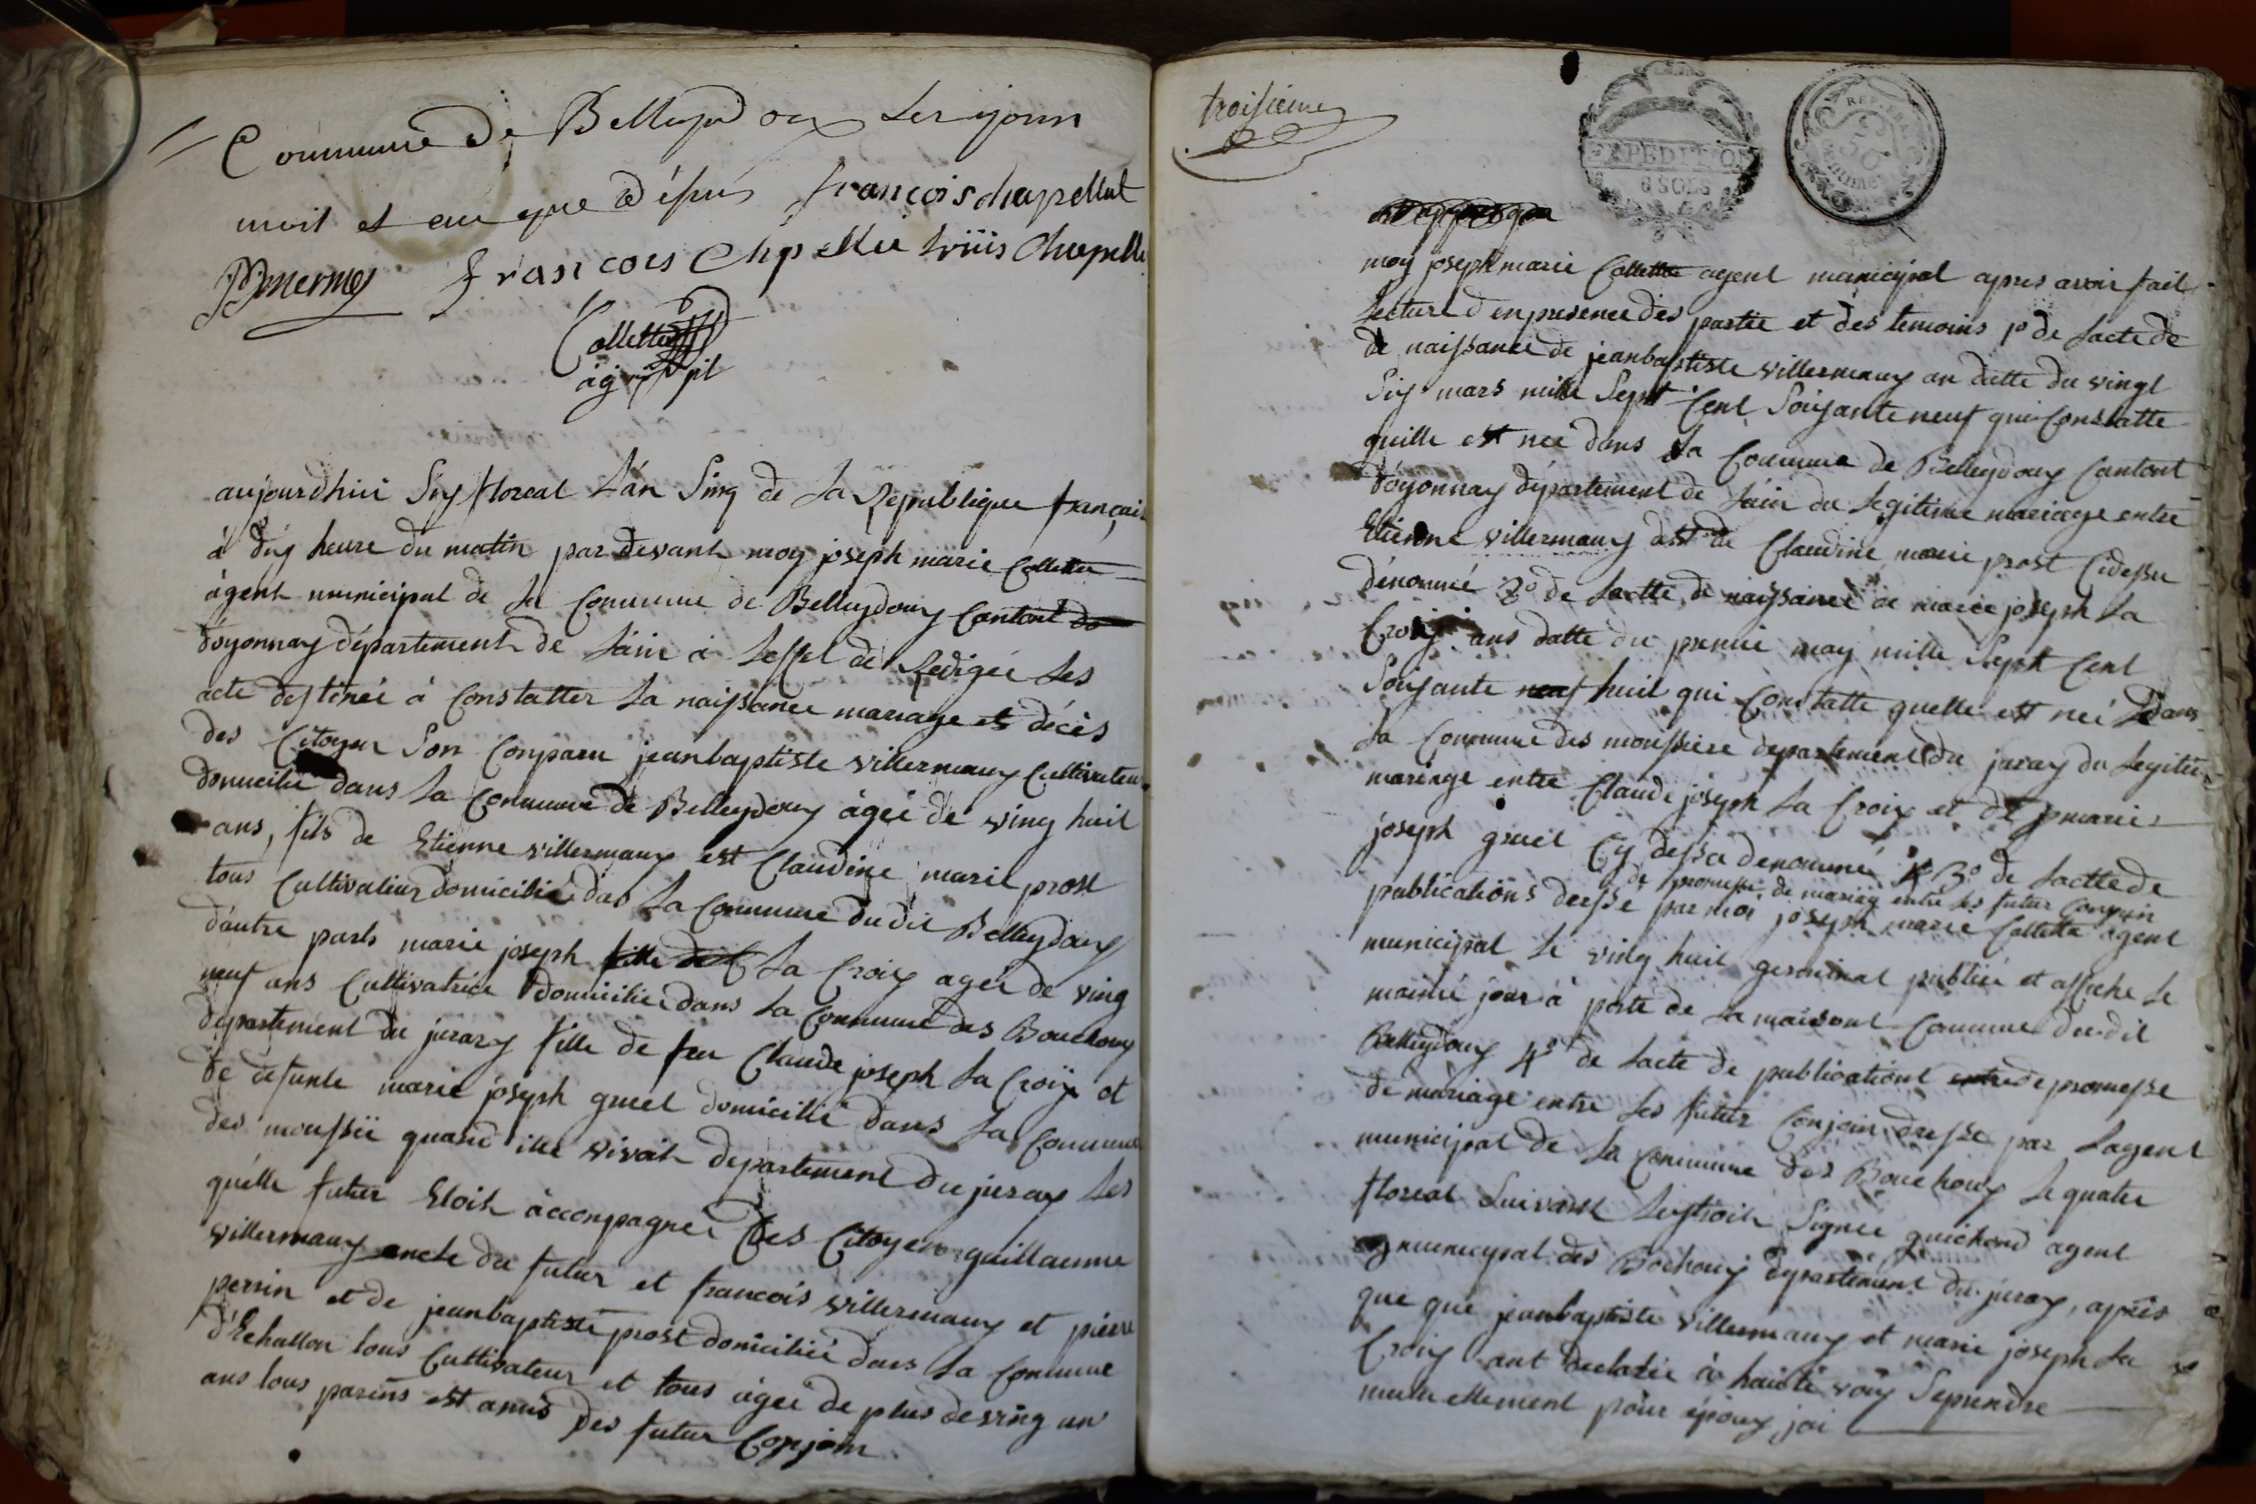 Commune de Belleydoux les jour
moit et an que dépus françois chapellut
Mermes francois Chpellu Lviiis Chapelle
Collettaz
ag pl
aujourdhui Six floreal Lán Sinq de La Republique françai
à dix heure du matin par devant moy joseph marie Collettaz
ágent municipal de La Commune de Belleydoux Cantont do
dóyonnax département de Láin à Leffet de Redigée Les
acte destinée à Constatter La naissance mariage et décès
des Citoyen Son Conparu jeanbaptiste villermaux Cultivateur
domicilié dans La Commune de Belleydoux àgée de ving huit
ans, fils de Etienne villermaux est Claudine marie prost
tous Cultivatiur domicilié das La Commune du dit Belleydoux
dáutre parts marie joseph fille de C La Croix agée de ving
neuf ans Cultivatrice domicilié dans La Commune des Bouchoux
département du jurax fille de feu Claude joseph La Croix et
de défunte marie joseph gruel domicilié dans La Commune
des moussié quand ille vivoit departement du jurax Les
quélle futur Etoit áccompagnée des Citoyen guillaume
villermaux oncle du futur et francois villermaux et pierre
perrin et de jeanbaptiste prost domicilié dans La Commune
d'Echallon tous Cultivateur et tous ágée de plus de ving un
ans tous parens est amis des futur Conjoin
troisieme
EXPEDITION
6 SOLS
REP. FRA
moy joseph marie Collettaz agent municipal apres avoir fait
Lecture d enpresence des partie et des temoins 1º de Lacte de
de naissance de jeanbaptiste villermaux an datte du vingt
Six mars mille Sept Cent Soixante neuf qui Constatte
quille est neé dans La Commune de Belleydoux Cantont
dóyonnax département de Láin du Legitime mariage entre
Etienne villermaux est de Claudine marie prost Cidessu
dénommé 2º de Lactte de naissance de marie joseph La
Croix ans datte du premié may mille Sept Cent
Soixante neuf huit qui Constatte quelle est neé dans
La Commune des moussiere departement du jurax du Legitime
mariage entre Claude joseph La Croix et de marie
joseph gruel Cy dessu denommé 3º de Lactte de
de promesse de mariag entre Les futur Conjoin
publications dersse par moi joseph marie Collettaz agent
municipal Le ving huit germinal publiée et affiche Le
maimé jour à porte de La maisont Commune du dit
Belleydoux 4º de Lacte de publicationt entre de promesse
de mariage entre Les futur Conjoin dresse par Lagent
municipal de La Commune des Bouchoux Le quatre
floreal Suivant Lextroit Signée guichard agent
municipal des Bochoux département du jurax, après
que que jeanbaptiste villermaux et marie joseph La
Croix ont declarée à haiute voix Seprendre
mutuellement pour époux jai